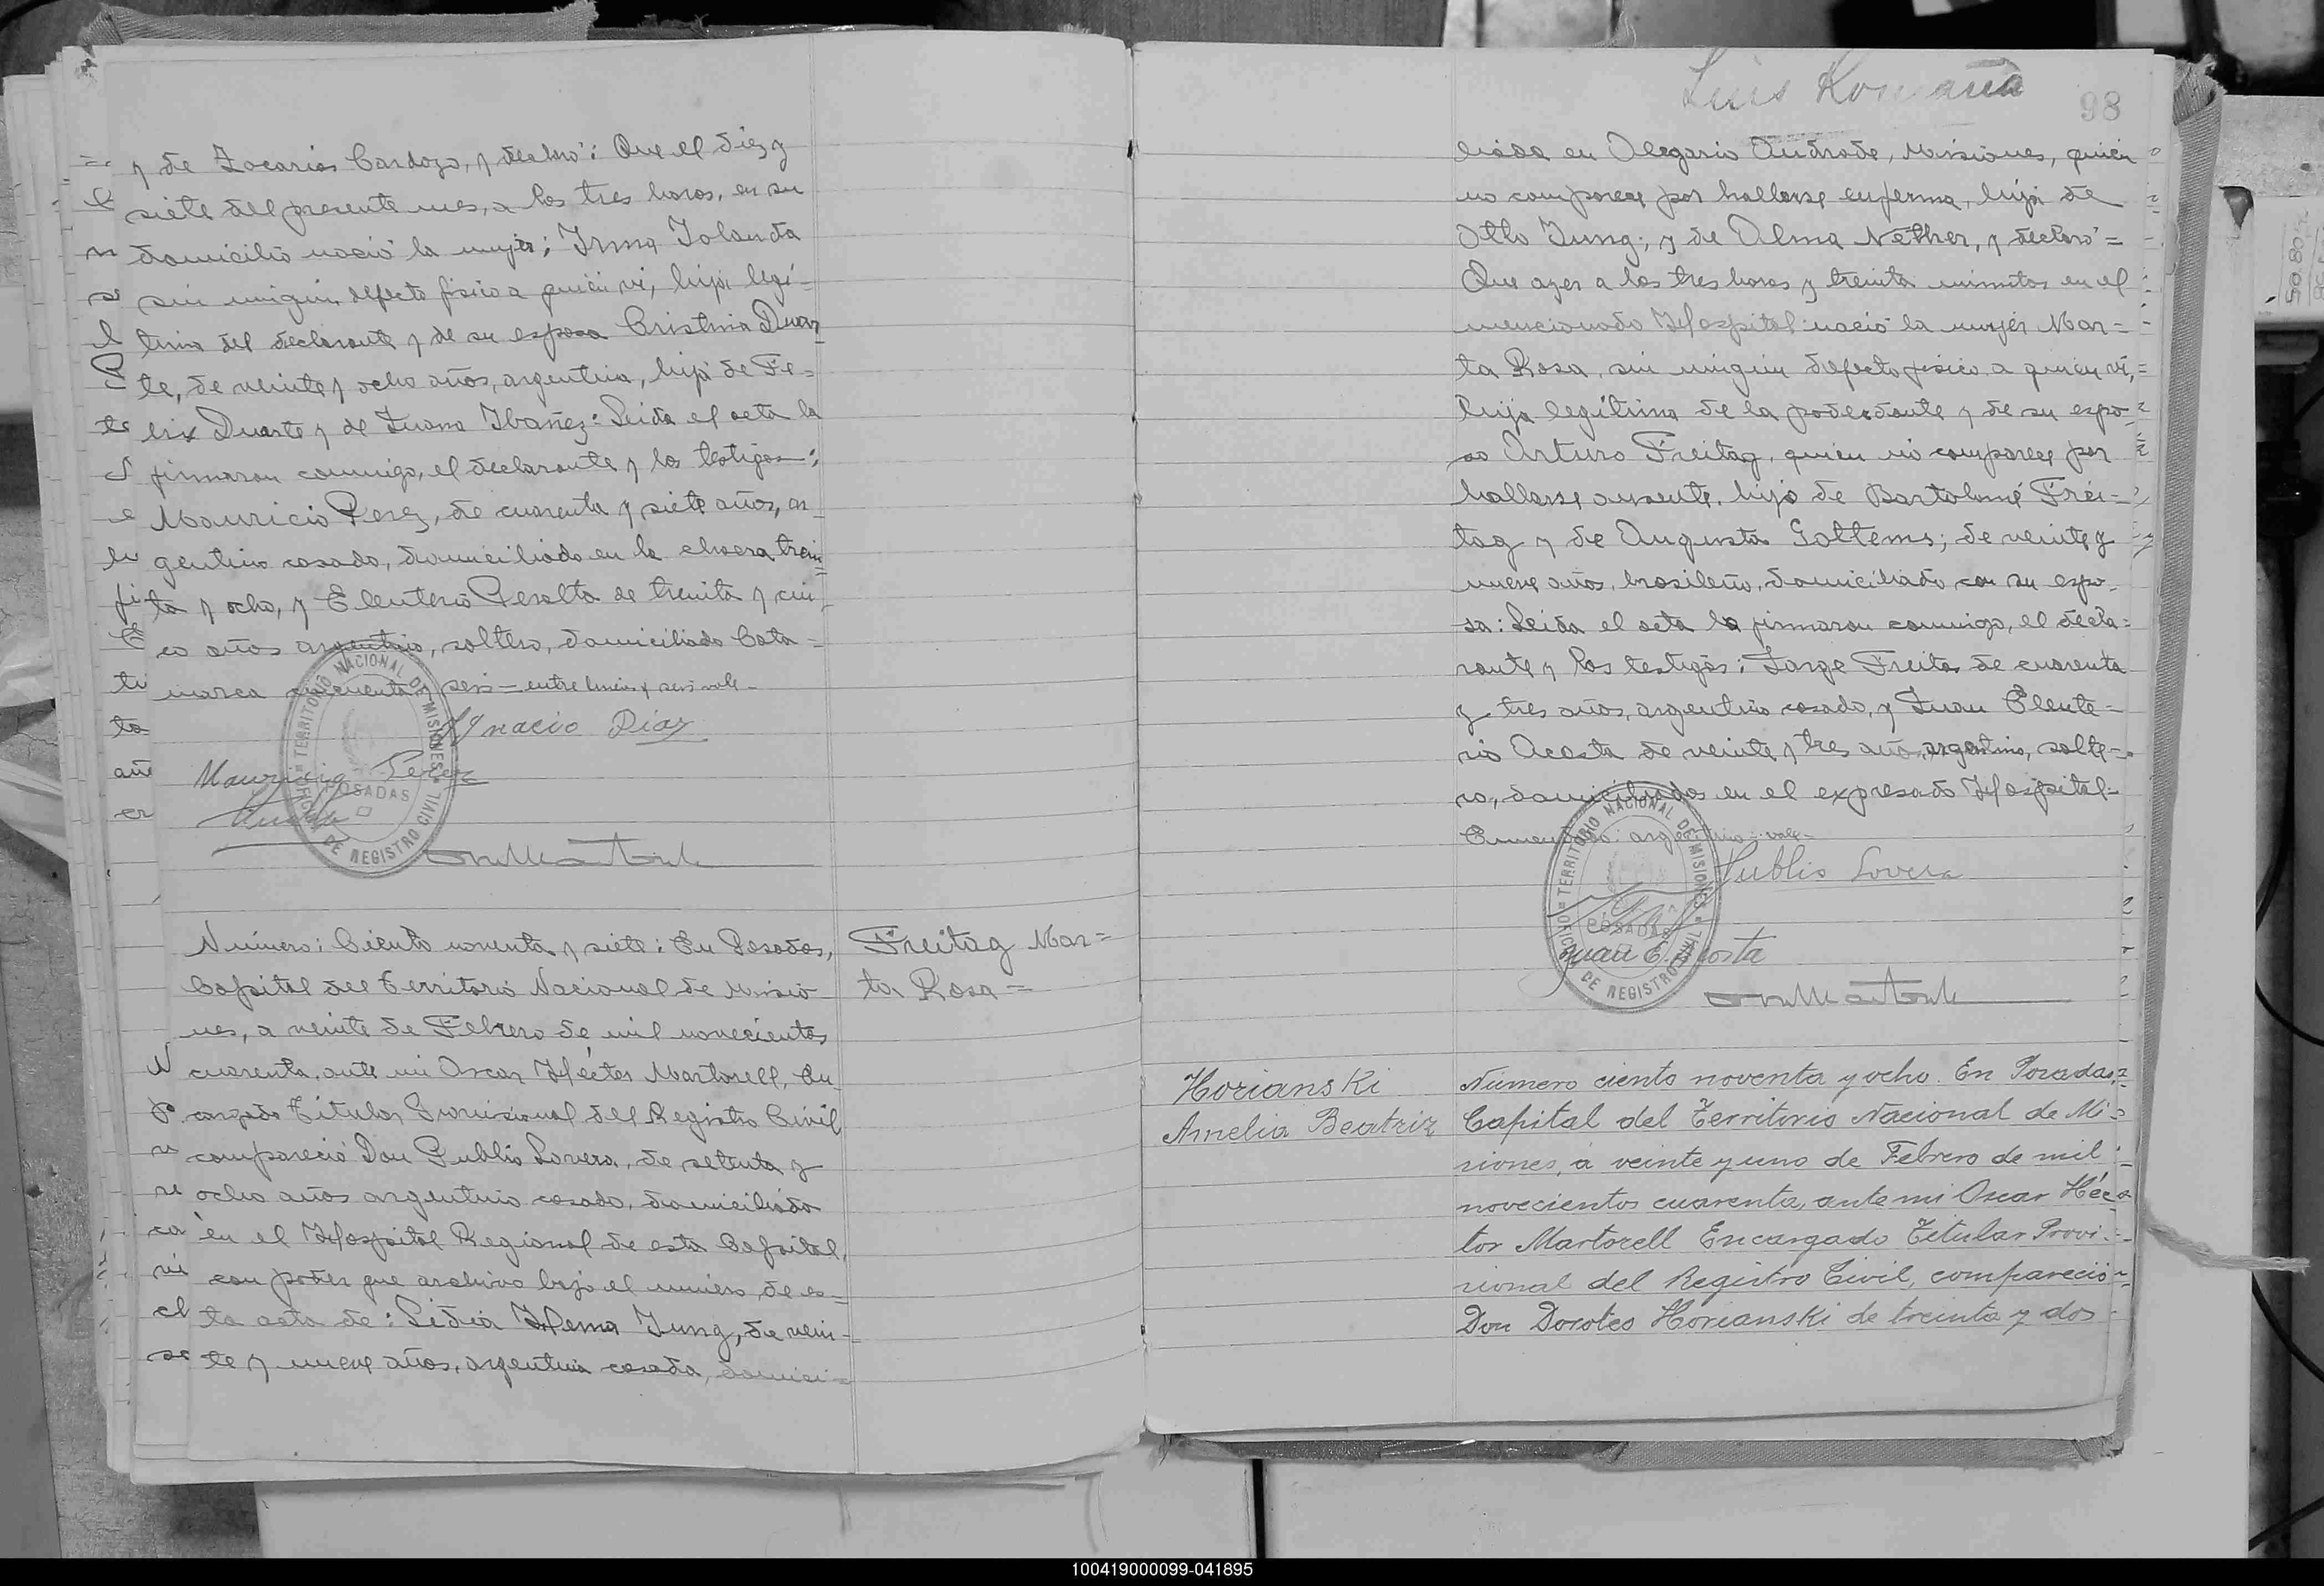 y de Zacarias Cardozo, y declaró: Que el diez y
siete del presente mes, a las tres horas, en su
domicilio nació la mujer: Irma Yolanda
sin ningun defecto fisico a quien vi, hija legi-
tima del declarante y de su esposa Cristina Duar-
te, de veinte y ocho años, argentina, hija de Fe-
lix Duarte y de Juana Ibañez: Leida el acta la
firmaron conmigo, el declarante y los testigos:
Mauricio Perez, de cuarenta y siete años, ar-
gentino casado, domiciliado en la chacra trein-
ta y ocho, y Eleuterio Peralta de treinta y cin-
co años argentino, soltero, domiciliado Cata-
marca cincuenta y seis - entre lineas y seis vale -
Ignacio Diaz
Mauricio Perez
TERRITORIO NACIONAL DE MISIONES
POSADAS
OFICINA DE REGISTRO CIVIL
Freitag Mar=
ta Rosa =
Número: Ciento noventa y siete: En Posadas,
Capital del Territorio Nacional de Misio-
nes, a veinte de Febrero de mil novecientos
cuarenta, ante mi Oscar Héctor Martorell, En-
cargado Titular Provisional del Registro Civil
compareció Don Publio Lovera, de setenta y
ocho años argentino casado, domiciliado
en el Hospital Regional de esta Capital,
con poder que archivo bajo el número de es-
ta acta de: Lidia Jung, de vein-
te y nueve años, argentina casada, domici=
Luis Romaña
98
liada en Olegario Andrade, Misiones, quien
no comparece por hallarse enferma, hija de
Otto Jung; y de Alma Nether, y declaró=
Que ayer a las tres horas y treinta minutos en el
mencionado Hospital nació la mujer Mar=
ta Rosa, sin ningun defecto fisico a quien vi,
hija legítima de la poderdante y de su espo-
so Arturo Freitag, quien no comparece por
hallarse ausente, hijo de Bartolomé Frei-
tag y de Augusta Gottems; de veinte y
nueve años, brasileño, domiciliado con su espo-
sa: Leida el acta la firmaron conmigo, el decla-
rante y los testigos: Jorge Freitas de cuarenta
y tres años, argentino casado, y Juan Eleute-
rio Acosta de veinte y tres años argentino, solte-
ro, domiciliados en el expresado Hospital-
Enmendado: argentino: vale-
Publio Lovera
TERRITORIO NACIONAL DE MISIONES
POSADAS
OFICINA DE REGISTRO CIVIL
Juan E. Acosta
Horianski
Amelia Beatriz
Número ciento noventa y ocho. En Posadas,
Capital del Territorio Nacional de Mi-
siones, a veinte y uno de Febrero de mil
novecientos cuarenta, ante mi Oscar Héc-
tor Martorell Encargado Titular Provi-
sional del Registro Civil, compareció
Don Doroteo Horianski de treinta y dos
100419000099-041895